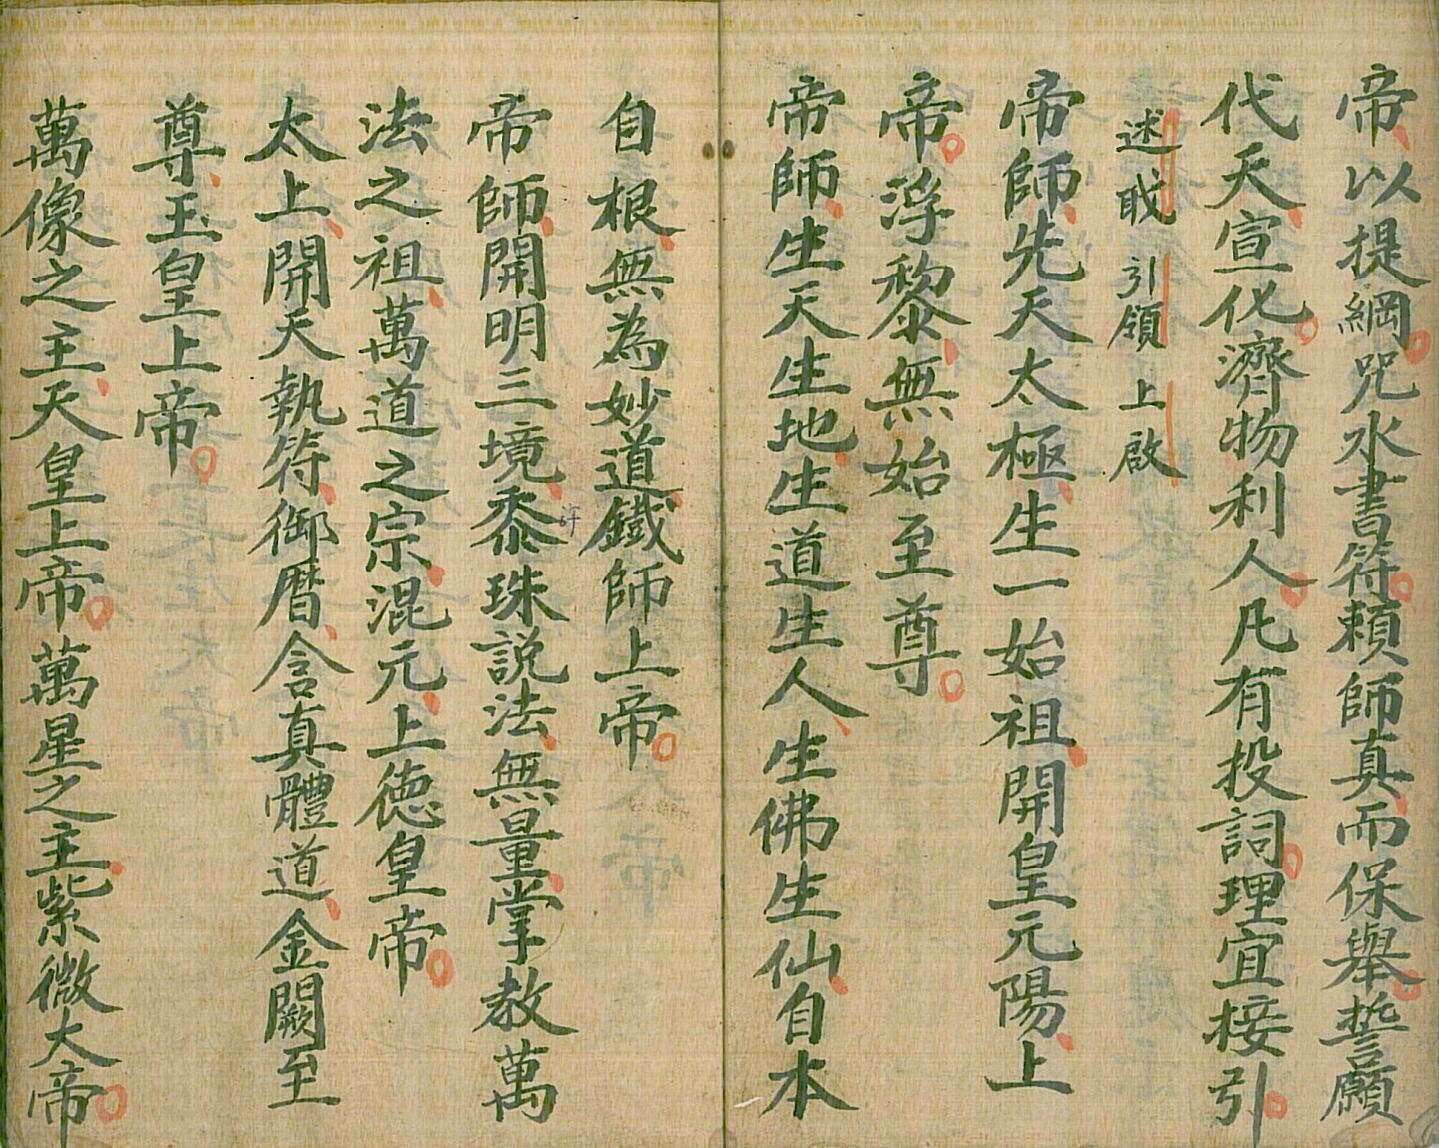 帝以提綱咒水書符賴師真而保舉誓願
代天宣化濟物利人凡有投詞理宜接引
述職 引領 上啟
帝師先天太極生一始祖開皇元陽上
帝浮黎無始至尊
帝師生天生地生道生人生佛生仙自本
自根無為妙道鐵師上帝
帝師開明三境黍珠説法無量掌教萬
法之祖萬道之宗混元上德皇帝
太上開天執符御曆含真體道金闕至
尊玉皇上帝
萬像之主天皇上帝萬星之主紫微大帝